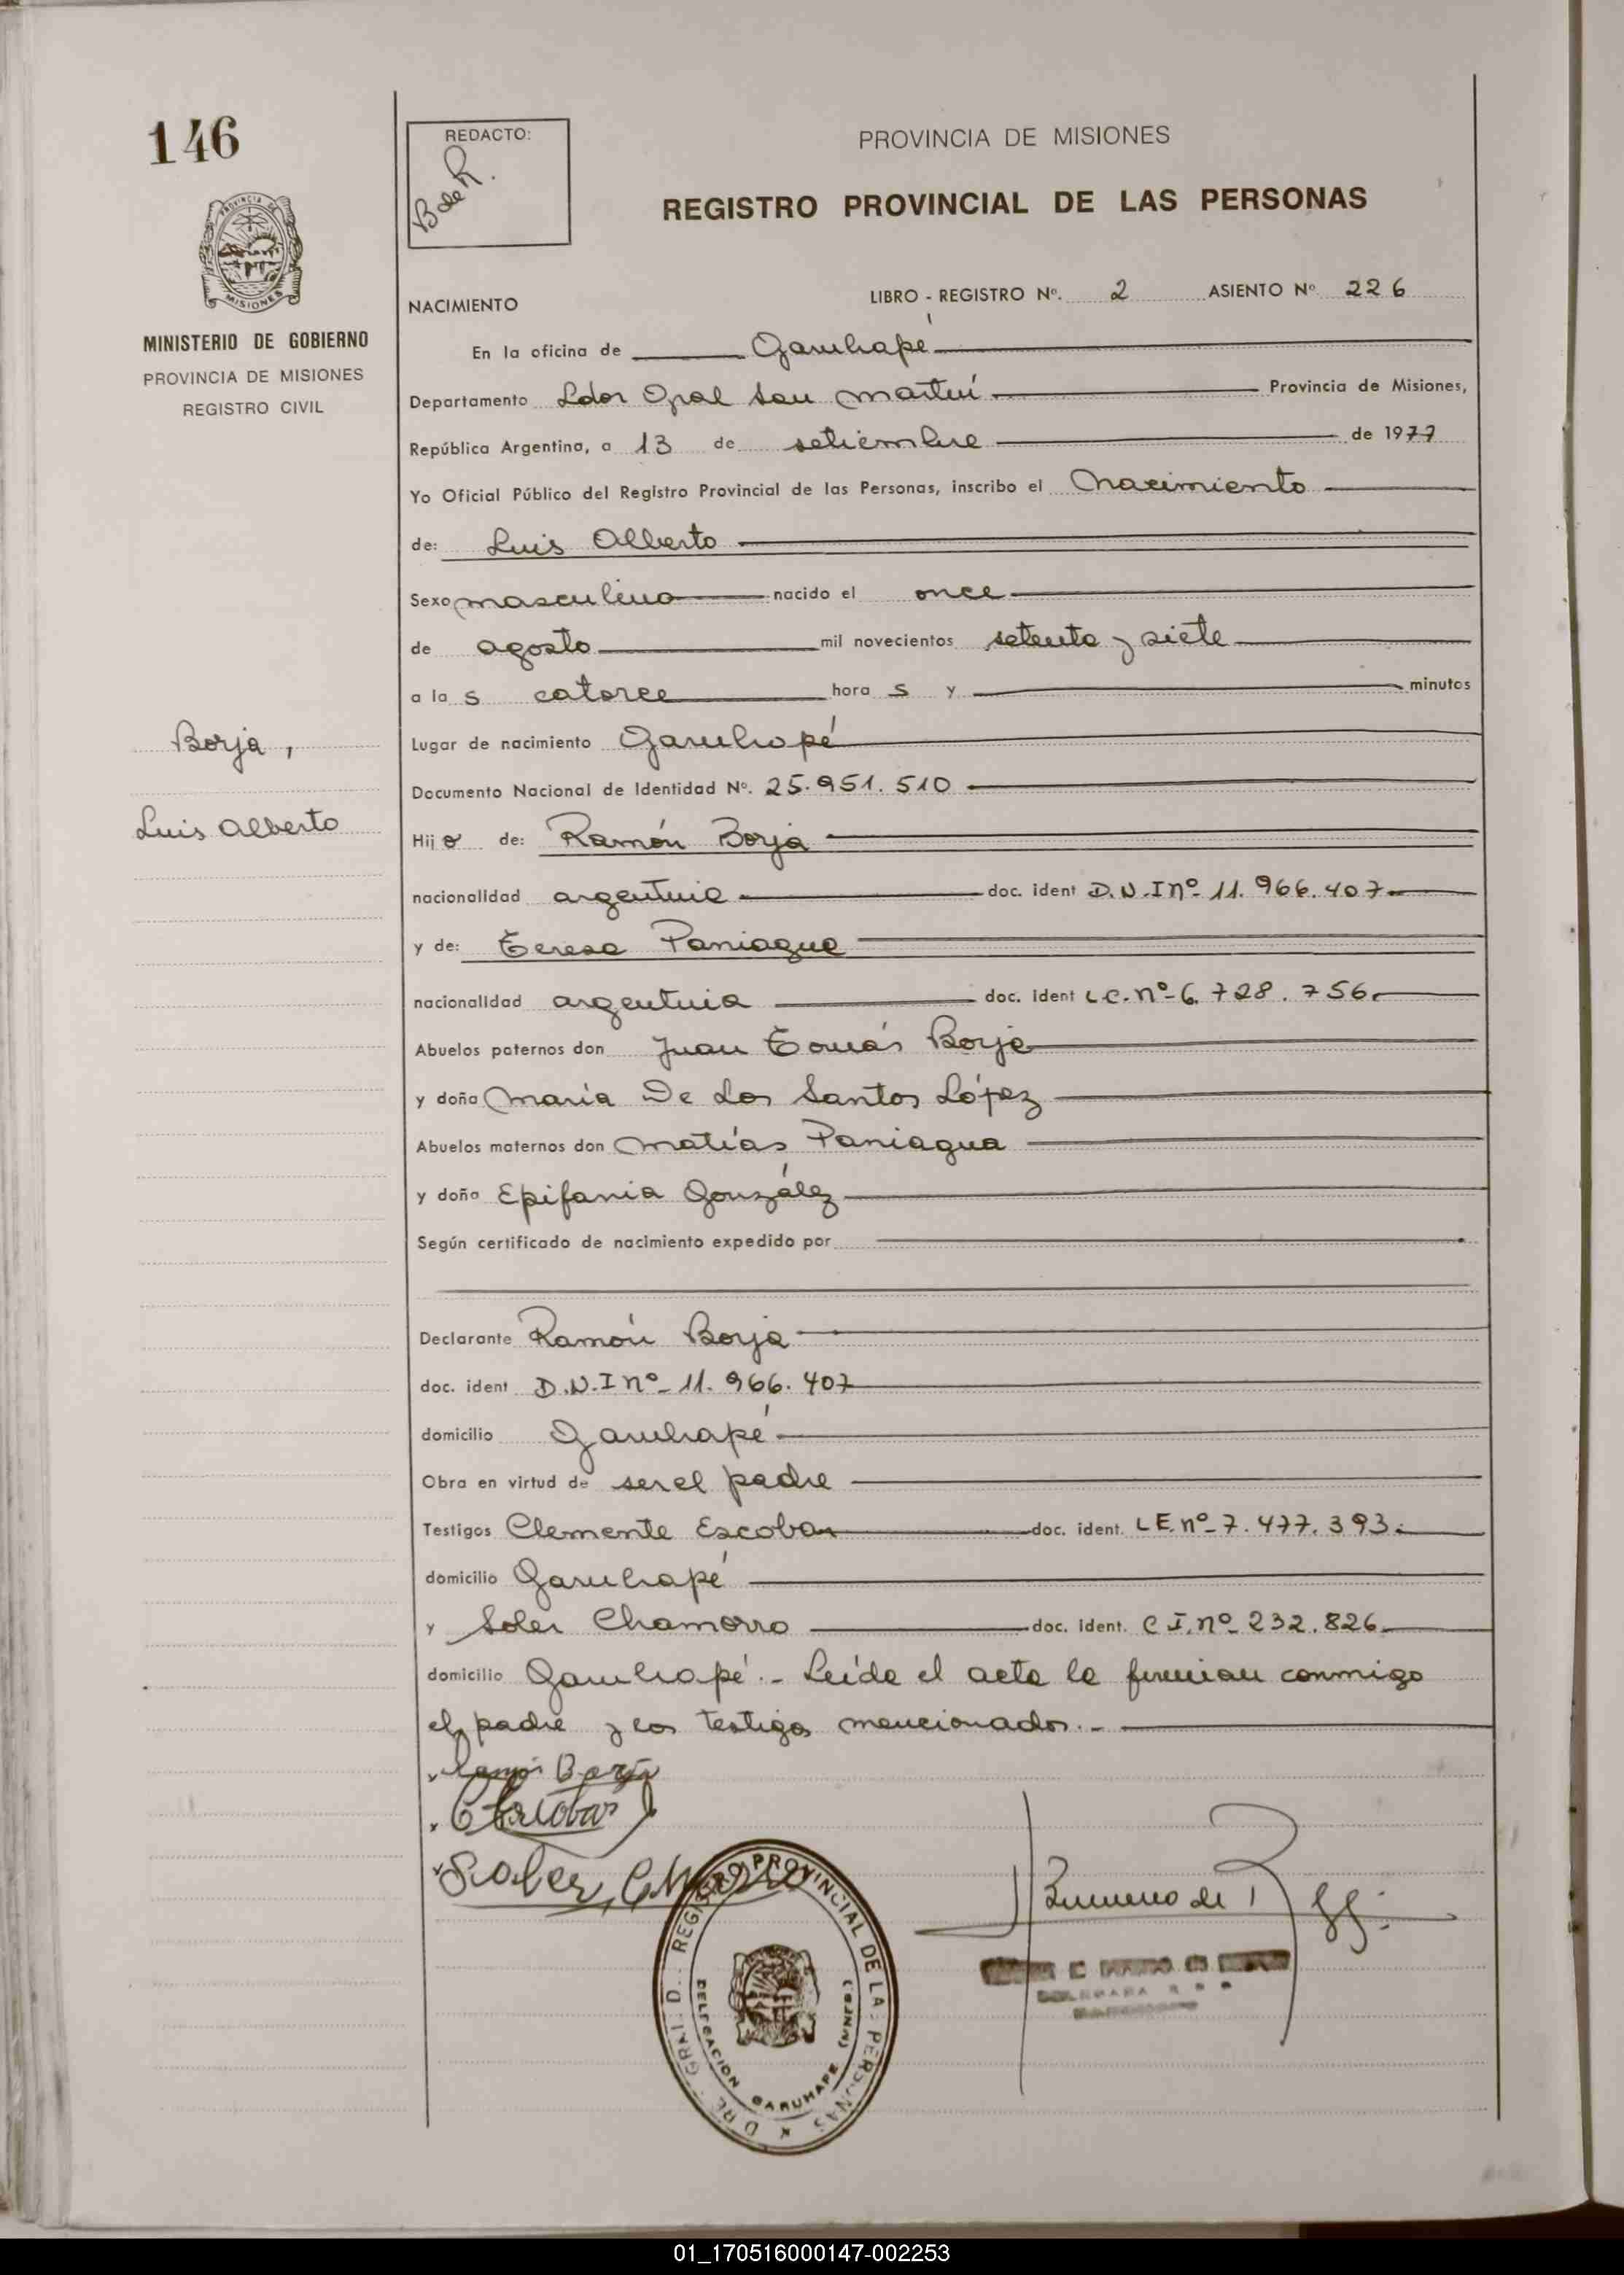 146
REDACTO:
B de R.
PROVINCIA DE MISIONES
REGISTRO PROVINCIAL DE LAS PERSONAS
MISIONES
MINISTERIO DE GOBIERNO
PROVINCIA DE MISIONES
REGISTRO CIVIL
NACIMIENTO
LIBRO - REGISTRO Nº. 2 ASIENTO Nº 226
En la oficina de Garuhapé
Departamento Ldor Gral San Martín Provincia de Misiones,
República Argentina, a 13 de setiembre de 1977
Yo Oficial Público del Registro Provincial de las Personas, inscribo el Nacimiento
de: Luis Alberto
Sexo masculino nacido el once
de agosto mil novecientos setenta y siete
a la s catorce hora s y minutos
Borja,
Luis Alberto
Lugar de nacimiento Garuhapé
Documento Nacional de Identidad Nº. 25.951.510
Hij o de: Ramón Borja
nacionalidad argentina doc. ident D.N.I nº- 11.966.407
y de: Teresa Paniagua
nacionalidad argentina doc. ident L.C. nº- 6.728.756
Abuelos paternos don Juan Tomás Borja
y doña María De Los Santos López
Abuelos maternos don Matías Paniagua
y doña Epifania González
Según certificado de nacimiento expedido por
Declarante Ramón Borja
doc. ident D.N.I nº- 11.966.407
domicilio Garuhapé
Obra en virtud de ser el padre
Testigos Clemente Escobar doc. ident. L.E. nº- 7.477.393.
domicilio Garuhapé
y Soler Chamorro doc. ident. C.I. nº- 232.826
domicilio Garuhapé.- Leída el acta la firman conmigo
el padre y los testigos mencionados.-
Ramón Borja
C Escobar
Soler
REGISTRO PROVINCIAL DE LAS PERSONAS
DELEGACION GARUHAPE (MNES.)
01_170516000147-002253